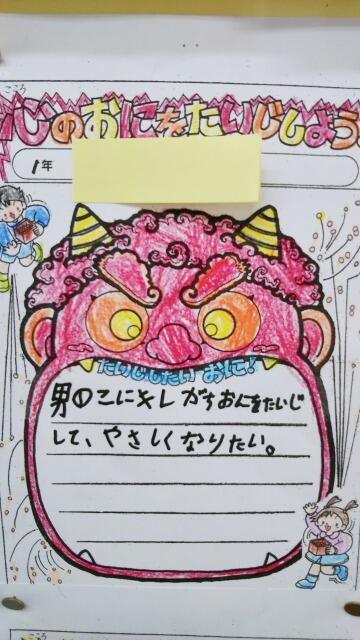 こころ
心のおにをたいじしよう
1年
たいじしたい おに!
男のこにキレがちおにをたいじ
して、やさしくなりたい。